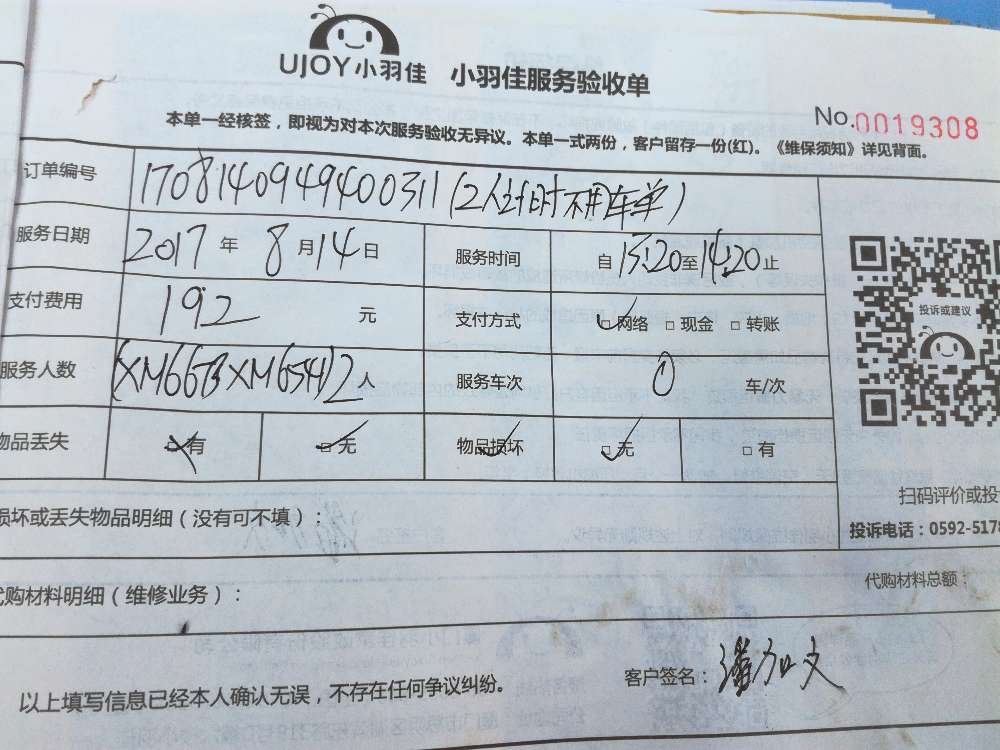 UJOY小羽佳 小羽佳服务验收单
No.0019308
本单一经核签，即视为对本次服务验收无异议。本单一式两份，客户留存一份(红)。《维保须知》详见背面。
订单编号 1708140949400311(2人计时不用车单)
服务日期 2017年8月14日 服务时间 自13:20至14:20止
支付费用 192元 支付方式 网络 现金 转账
服务人数 2人 服务车次 0 车/次
物品丢失 有 无 物品损坏 无 有
投诉或建议
扫码评价或投
投诉电话：0592-5178
损坏或丢失物品明细（没有可不填）：
代购材料明细（维修业务）：
代购材料总额：
以上填写信息已经本人确认无误，不存在任何争议纠纷。
客户签名：